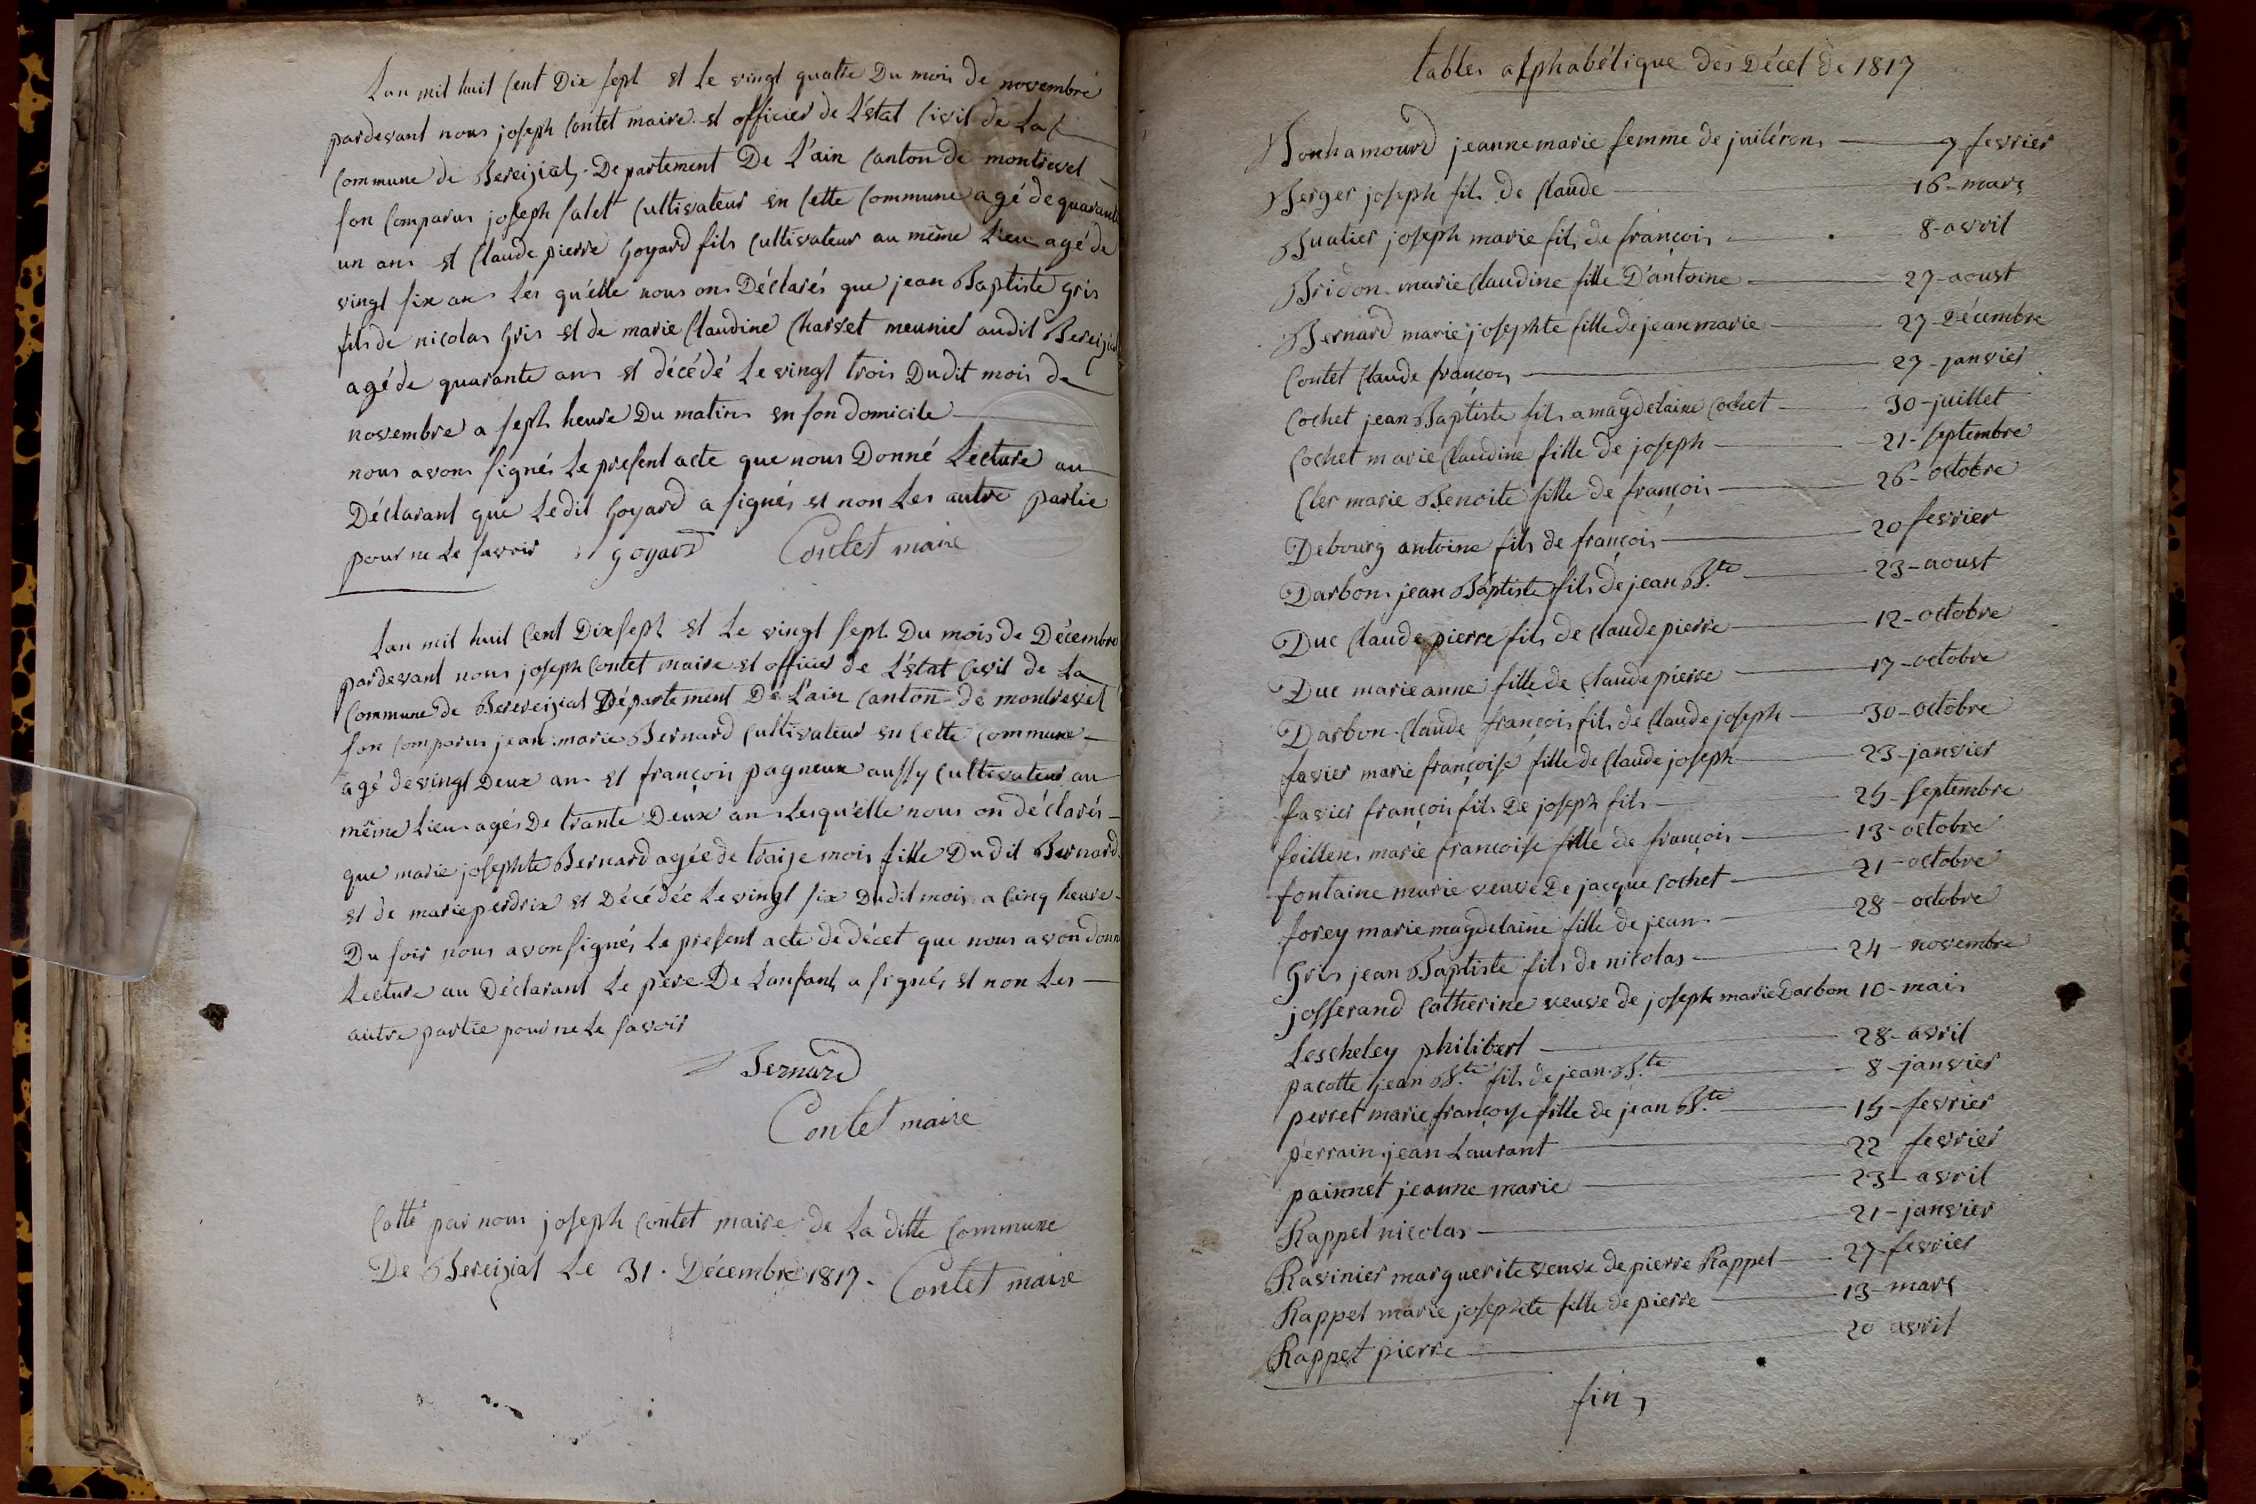 Lan mil huit Cent Dix sept et Le vingt quatre Du mois de novembre
pardevant nous joseph Contet maire et officier de L'état Civil de La
Commune de Bereiziat, Departement De L'ain Canton de montrevel
son Comparus joseph Salet Cultivateur en Cette Commune agé de quarante
un ans et Claude pierre Goyard fils Cultivateur au même Lieu agé de
vingt six ans Les qu'elle nous ons Déclarés que jean Baptiste Gris
fils de nicolas Gris et de marie Claudine Charvet meunier audit Bereiziat
agé de quarante ans et décédé Le vingt trois Dudit mois de
novembre a sept heure Du matins en son domicile
nous avons signés Le present acte que nous Donné Lecture au
Déclarant que Ledit Goyard a signés et non Les autre partie
pour ne Le savoir goyard Contet maire
Lan mil huit Cent Dix sept et Le vingt sept Du mois de Décembre
pardevant nous joseph Contet maire et officier de L'état Civil de La
Commune de Berereiziat Département De L'ain Canton de montrevel
son Comparus jean marie Bernard Cultivateur en Cette Commune
agé de vingt Deux ans et françois pagneux aussy Cultivateur au
même Lieu agés De trante Deux ans Lesqu'elle nous on déclarés
que marie josephte Bernard agée de traize mois fille Dudit Bernard
et de marie perdrix et Décédée Le vingt six Dudit mois a Cinq heure
Du soir nous avon signés Le present acte de décet que nous avon donné
Lecture au Déclarant Le père De Lanfant a signés et non Les
autre partie pour ne Le savoir
Bernard
Contet maire
Cotté par nous joseph Contet maire de La ditte Commune
De Bereiziat Le 31. Décembre 1817. Contet maire
tables alphabétique des Décet de 1817
Bonhamourd jeanne marie femme de juilérons 9 fevrier
Berger joseph fils de Claude 16 - mars
Buatier joseph marie fils de françois 8 - avril
Bridon marie Claudine fille D'antoine 27 - aoust
Bernard marie josephte fille de jean marie 27 - Décembre
Contet Claude françois 27 - janvier
Cochet jean Baptiste fils a magdelaine Cochet 30 - juillet
Cochet marie Claudine fille de joseph 21 - septembre
Cler marie Benoite fille de françois 26 - octobre
Debourg antoine fils de françois 20 fevrier
Darbons jean Baptiste fils de jean B.te 23 - aoust
Duc Claude pierre fils de Claude pierre 12 - octobre
Duc marie anne fille de Claude pierre 17 - octobre
Darbon Claude françois fils de Claude joseph 30 - octobre
favier marie françoise fille de Claude joseph 23 - janvier
favier françois fils De joseph fils 25 - septembre
feillens marie francoise fille de françois 13 - octobre
fontaine marie veuve De jacque Cochet 21 - octobre
forey marie magdelaine fille de jean 28 - octobre
Gris jean Baptiste fils de nicolas 24 - novembre
josserand Catherine veuve de joseph marie Darbon 10 - mais
Lescheley philibert 28 - avril
pacotte jean B.te fils de jean B.te 8 - janvier
perret marie françoise fille de jean B.te 15 - fevrier
perrain jean Laurant 22 fevrier
painnet jeanne marie 23 - avril
Rappet nicolas 21 - janvier
Ravinier marguerite veuve de pierre Rappet 27 fevrier
Rappet marie josephte fille de pierre 13 - mars
Rappet pierre 20 avril
fin